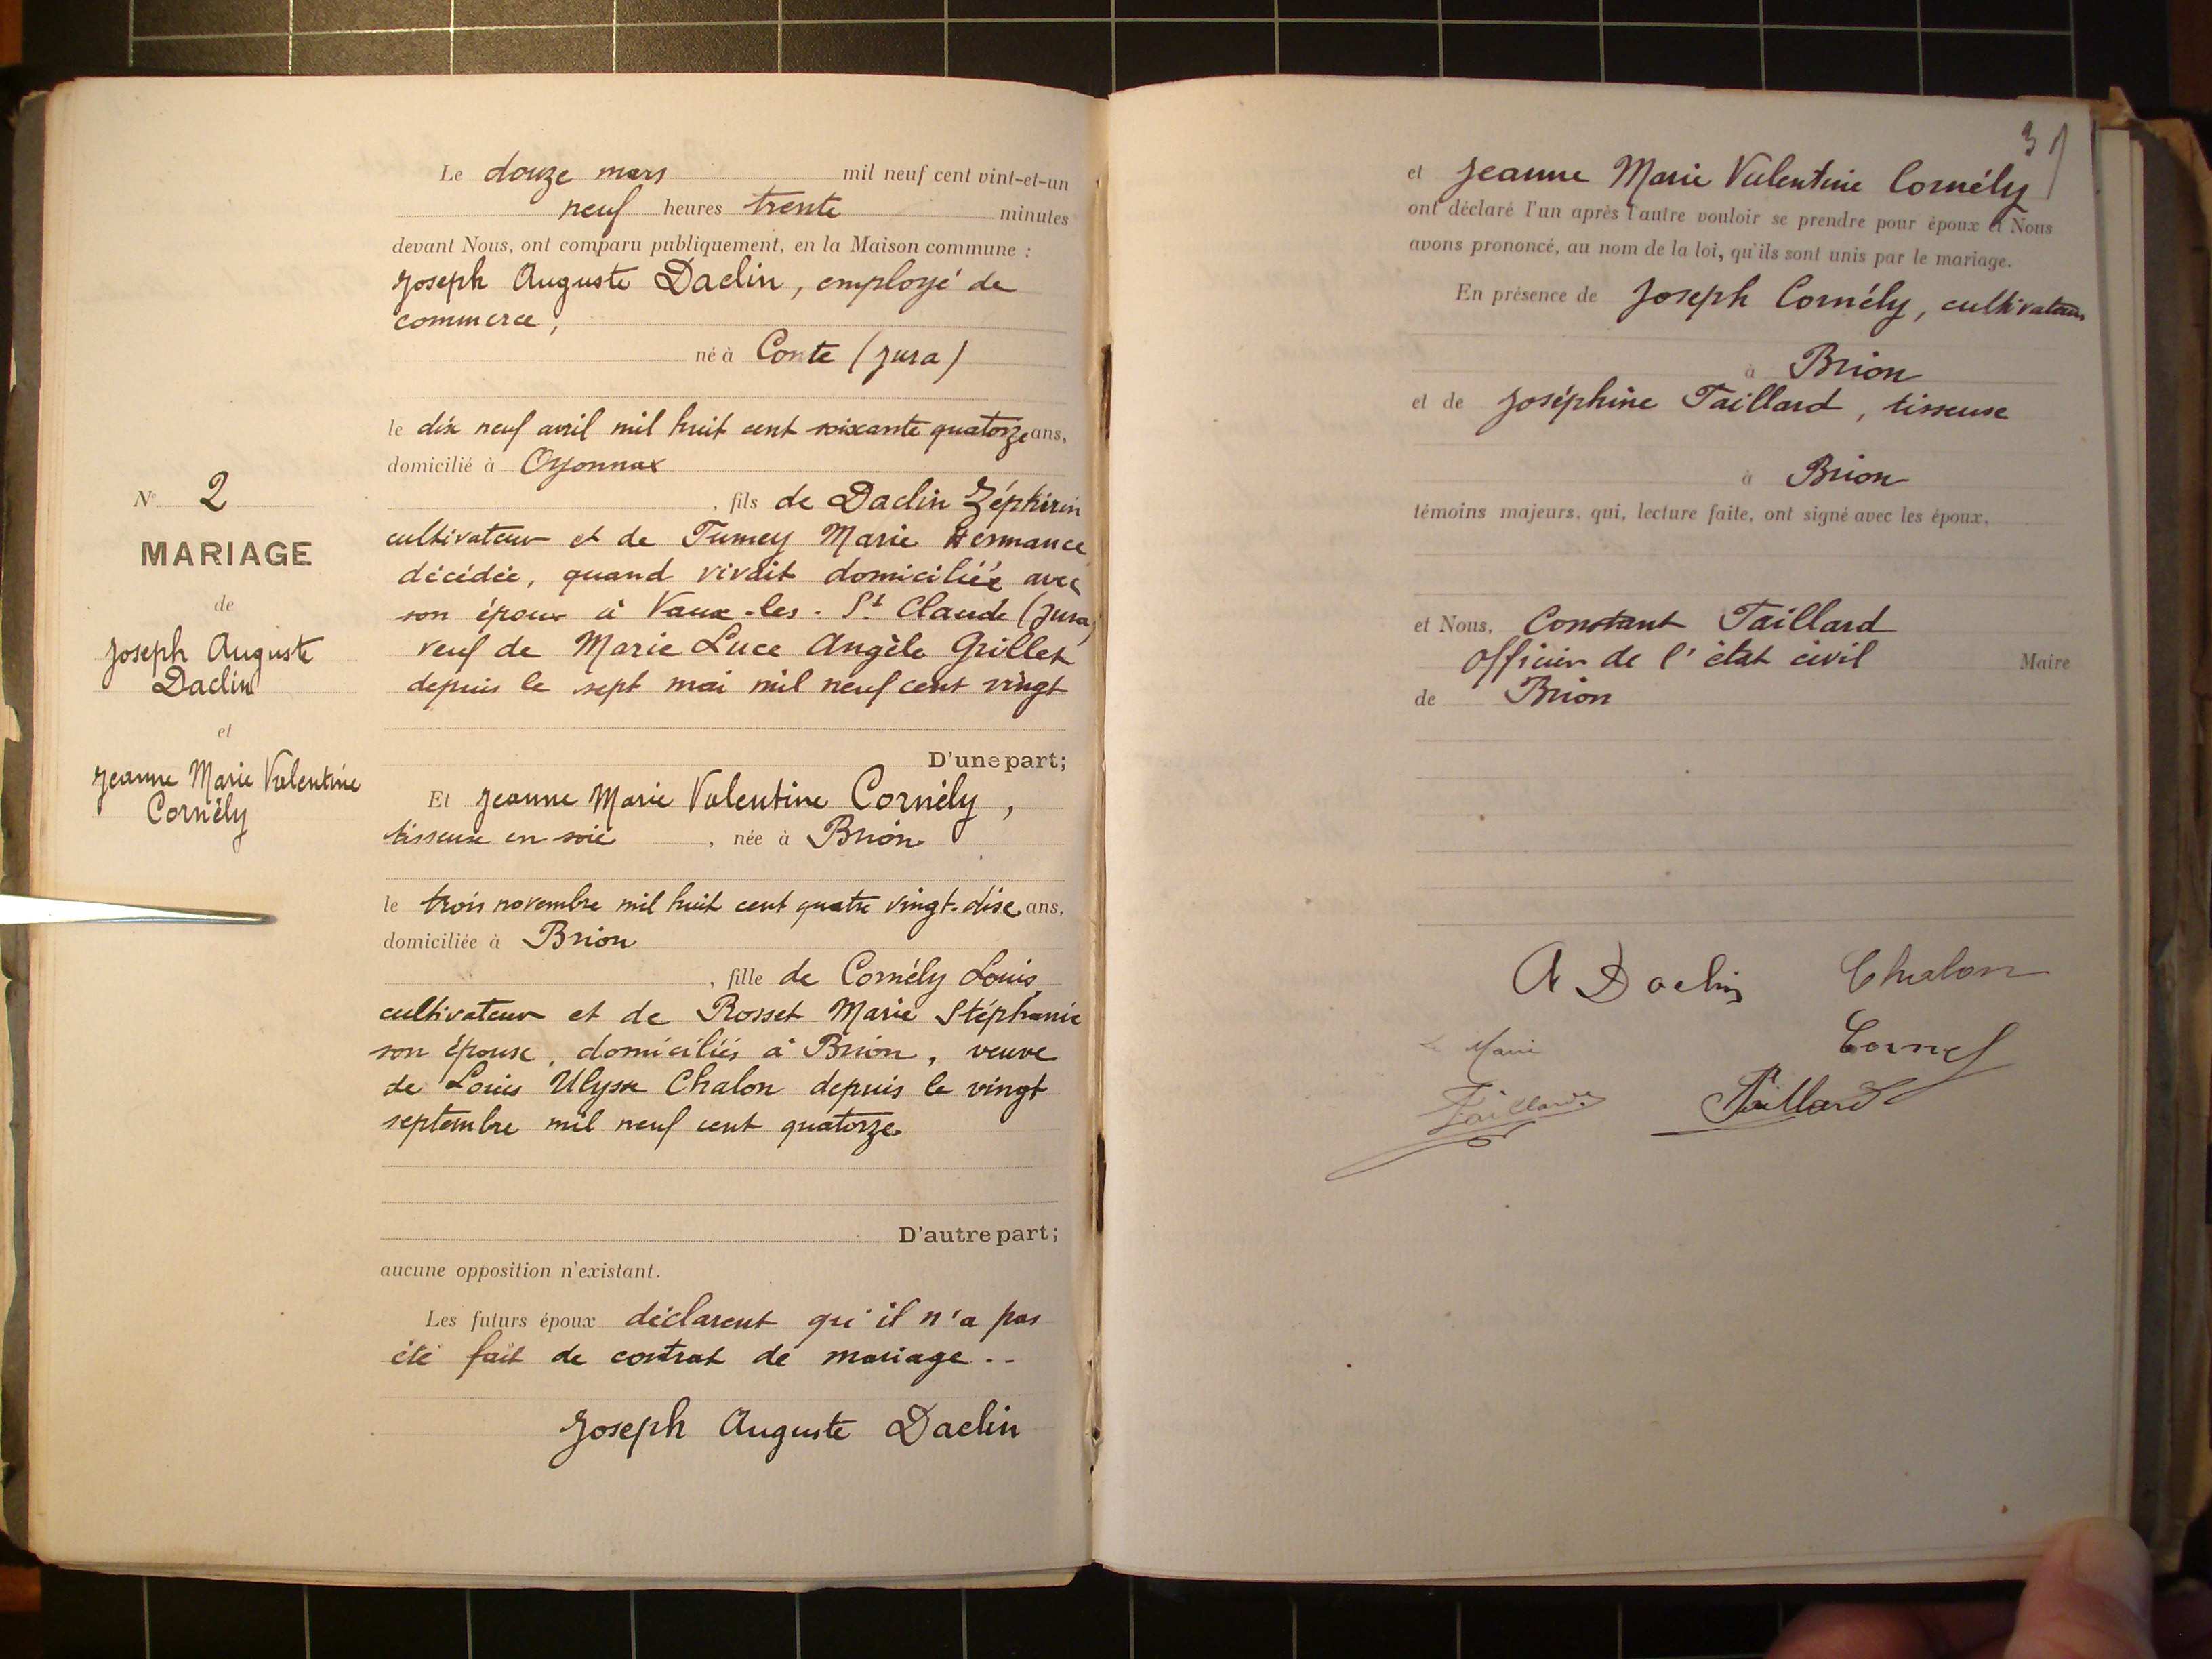 Le douze mars mil neuf cent vint-et-un
neuf heures trente minutes
devant Nous, ont comparu publiquement, en la Maison commune :
Joseph Auguste Daclin, employé de
commerce,
né à Conte (Jura)
le dix neuf avril mil huit cent soixante quatorze ans,
domicilié à Oyonnax
, fils de Daclin Zéphirin
cultivateur et de Tumey Marie Hermance
décédée, quand vivait domiciliée avec
son époux à Vaux-les-St Claude (Jura)
veuf de Marie Luce Angèle Grillet
depuis le sept mai mil neuf cent vingt
D'une part;
Et Jeanne Marie Valentine Cornély,
tisseuse en soie, née à Brion
le trois novembre mil huit cent quatre vingt-dix ans,
domiciliée à Brion
, fille de Cornély Louis,
cultivateur et de Rosset Marie Stéphanie
son épouse, domiciliés à Brion, veuve
de Louis Ulysse Chalon depuis le vingt
septembre mil neuf cent quatorze
D'autre part;
aucune opposition n'existant.
Les futurs époux déclarent qu'il n'a pas
été fait de contrat de mariage..
Joseph Auguste Daclin
No 2
MARIAGE
de
Joseph Auguste
Daclin
et
Jeanne Marie Valentine
Cornély
3
et Jeanne Marie Valentine Cornély
ont déclaré l'un après l'autre vouloir se prendre pour époux et Nous
avons prononcé, au nom de la loi, qu'ils sont unis par le mariage.
En présence de Joseph Cornély, cultivateur
à Brion
et de Joséphine Taillard, tisseuse
à Brion
témoins majeurs, qui, lecture faite, ont signé avec les époux,
et Nous, Constant Taillard
officier de l'état civil Maire
de Brion
A Daclin Chalon
Marie
Taillard Taillard